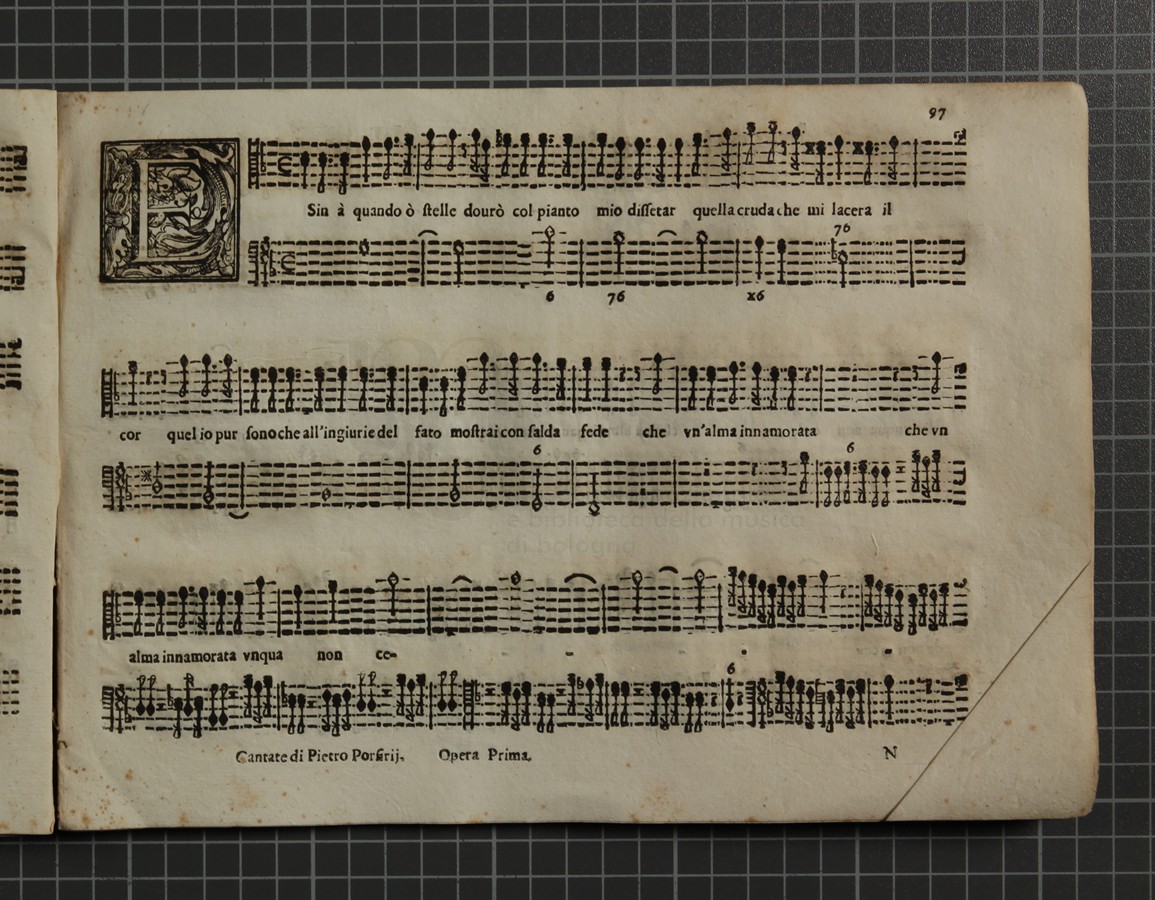 97
E Sin à quando ò ſtelle dourò col pianto mio diſſetar quella cruda che mi lacera il
76
6 76 x6
cor quel io pur ſono che all'ingiurie del fato moſtrai con ſalda fede che vn'alma innamorata che vn
6 6
e biblioteca della musica
di bologna
alma innamorata vnqua non ce- - - -
6
Cantate di Pietro Porfirij, Opera Prima. N